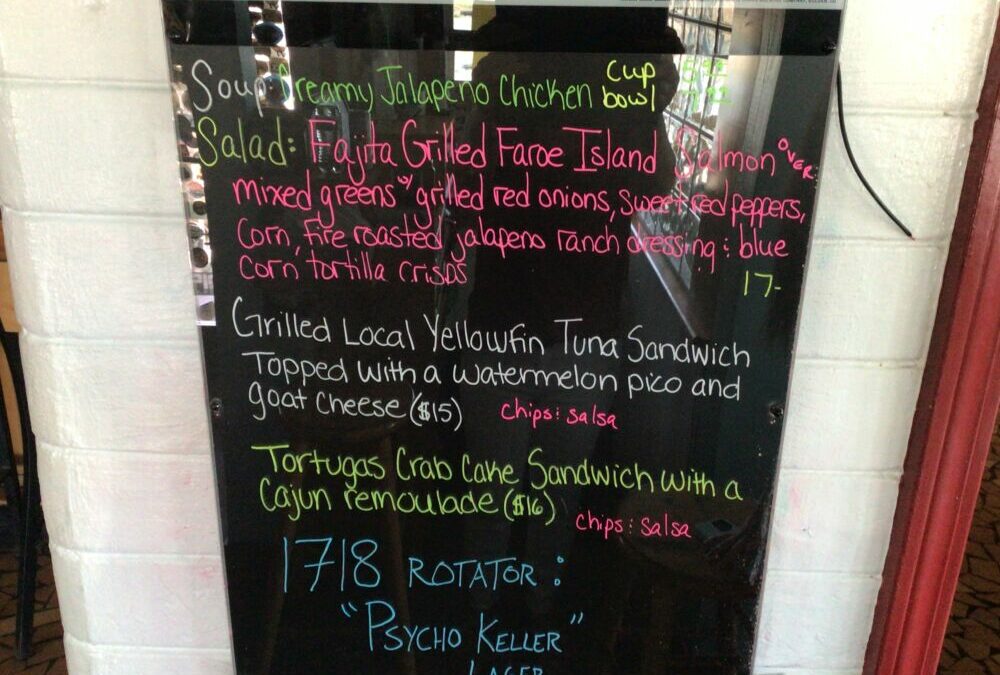 Soup: Creamy Jalapeno Chicken cup
bowl
Salad: Fajita Grilled Faroe Island Salmon OVER
mixed greens w/ grilled red onions, sweet red peppers,
corn, fire roasted jalapeno ranch dressing : blue
corn tortilla crisps
17-
Grilled Local Yellowfin Tuna Sandwich
Topped with a watermelon pico and
goat cheese ($15) chips : salsa
Tortugas Crab Cake Sandwich with a
Cajun remoulade ($16) chips : salsa
1718 ROTATOR :
"PSYCHO KELLER"
LAGER